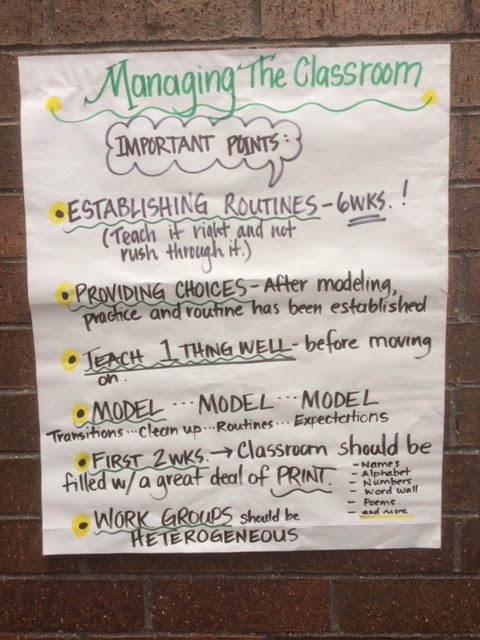 Managing The Classroom
IMPORTANT POINTS:
ESTABLISHING ROUTINES - 6WKS. !
(Teach it right and not
rush through it.)
PROVIDING CHOICES - After modeling,
practice and routine has been established
TEACH 1 THING WELL - before moving
on.
MODEL ... MODEL ... MODEL
Transitions ... Clean up ... Routines ... Expectations
FIRST 2 WKS. → Classroom should be
filled w/ a great deal of PRINT.
- Names
- Alphabet
- Numbers
- Word wall
- Poems
- and more
WORK GROUPS should be
HETEROGENEOUS